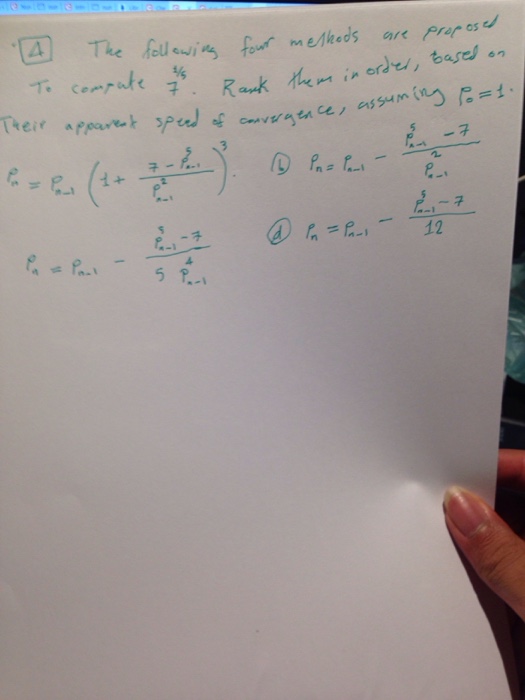 4 The following four methods are proposed
To compute 7^{1/5}. Rank them in order, based on
Their apparent speed of convergence, assuming P_0 = 1.
P_n = P_{n-1} (1 + \frac{7 - P_{n-1}^5}{P_{n-1}^2})^3. (b) P_n = P_{n-1} - \frac{P_{n-1}^5 - 7}{P_{n-1}^2}
P_n = P_{n-1} - \frac{P_{n-1}^5 - 7}{5 P_{n-1}^4} (d) P_n = P_{n-1} - \frac{P_{n-1}^5 - 7}{12}